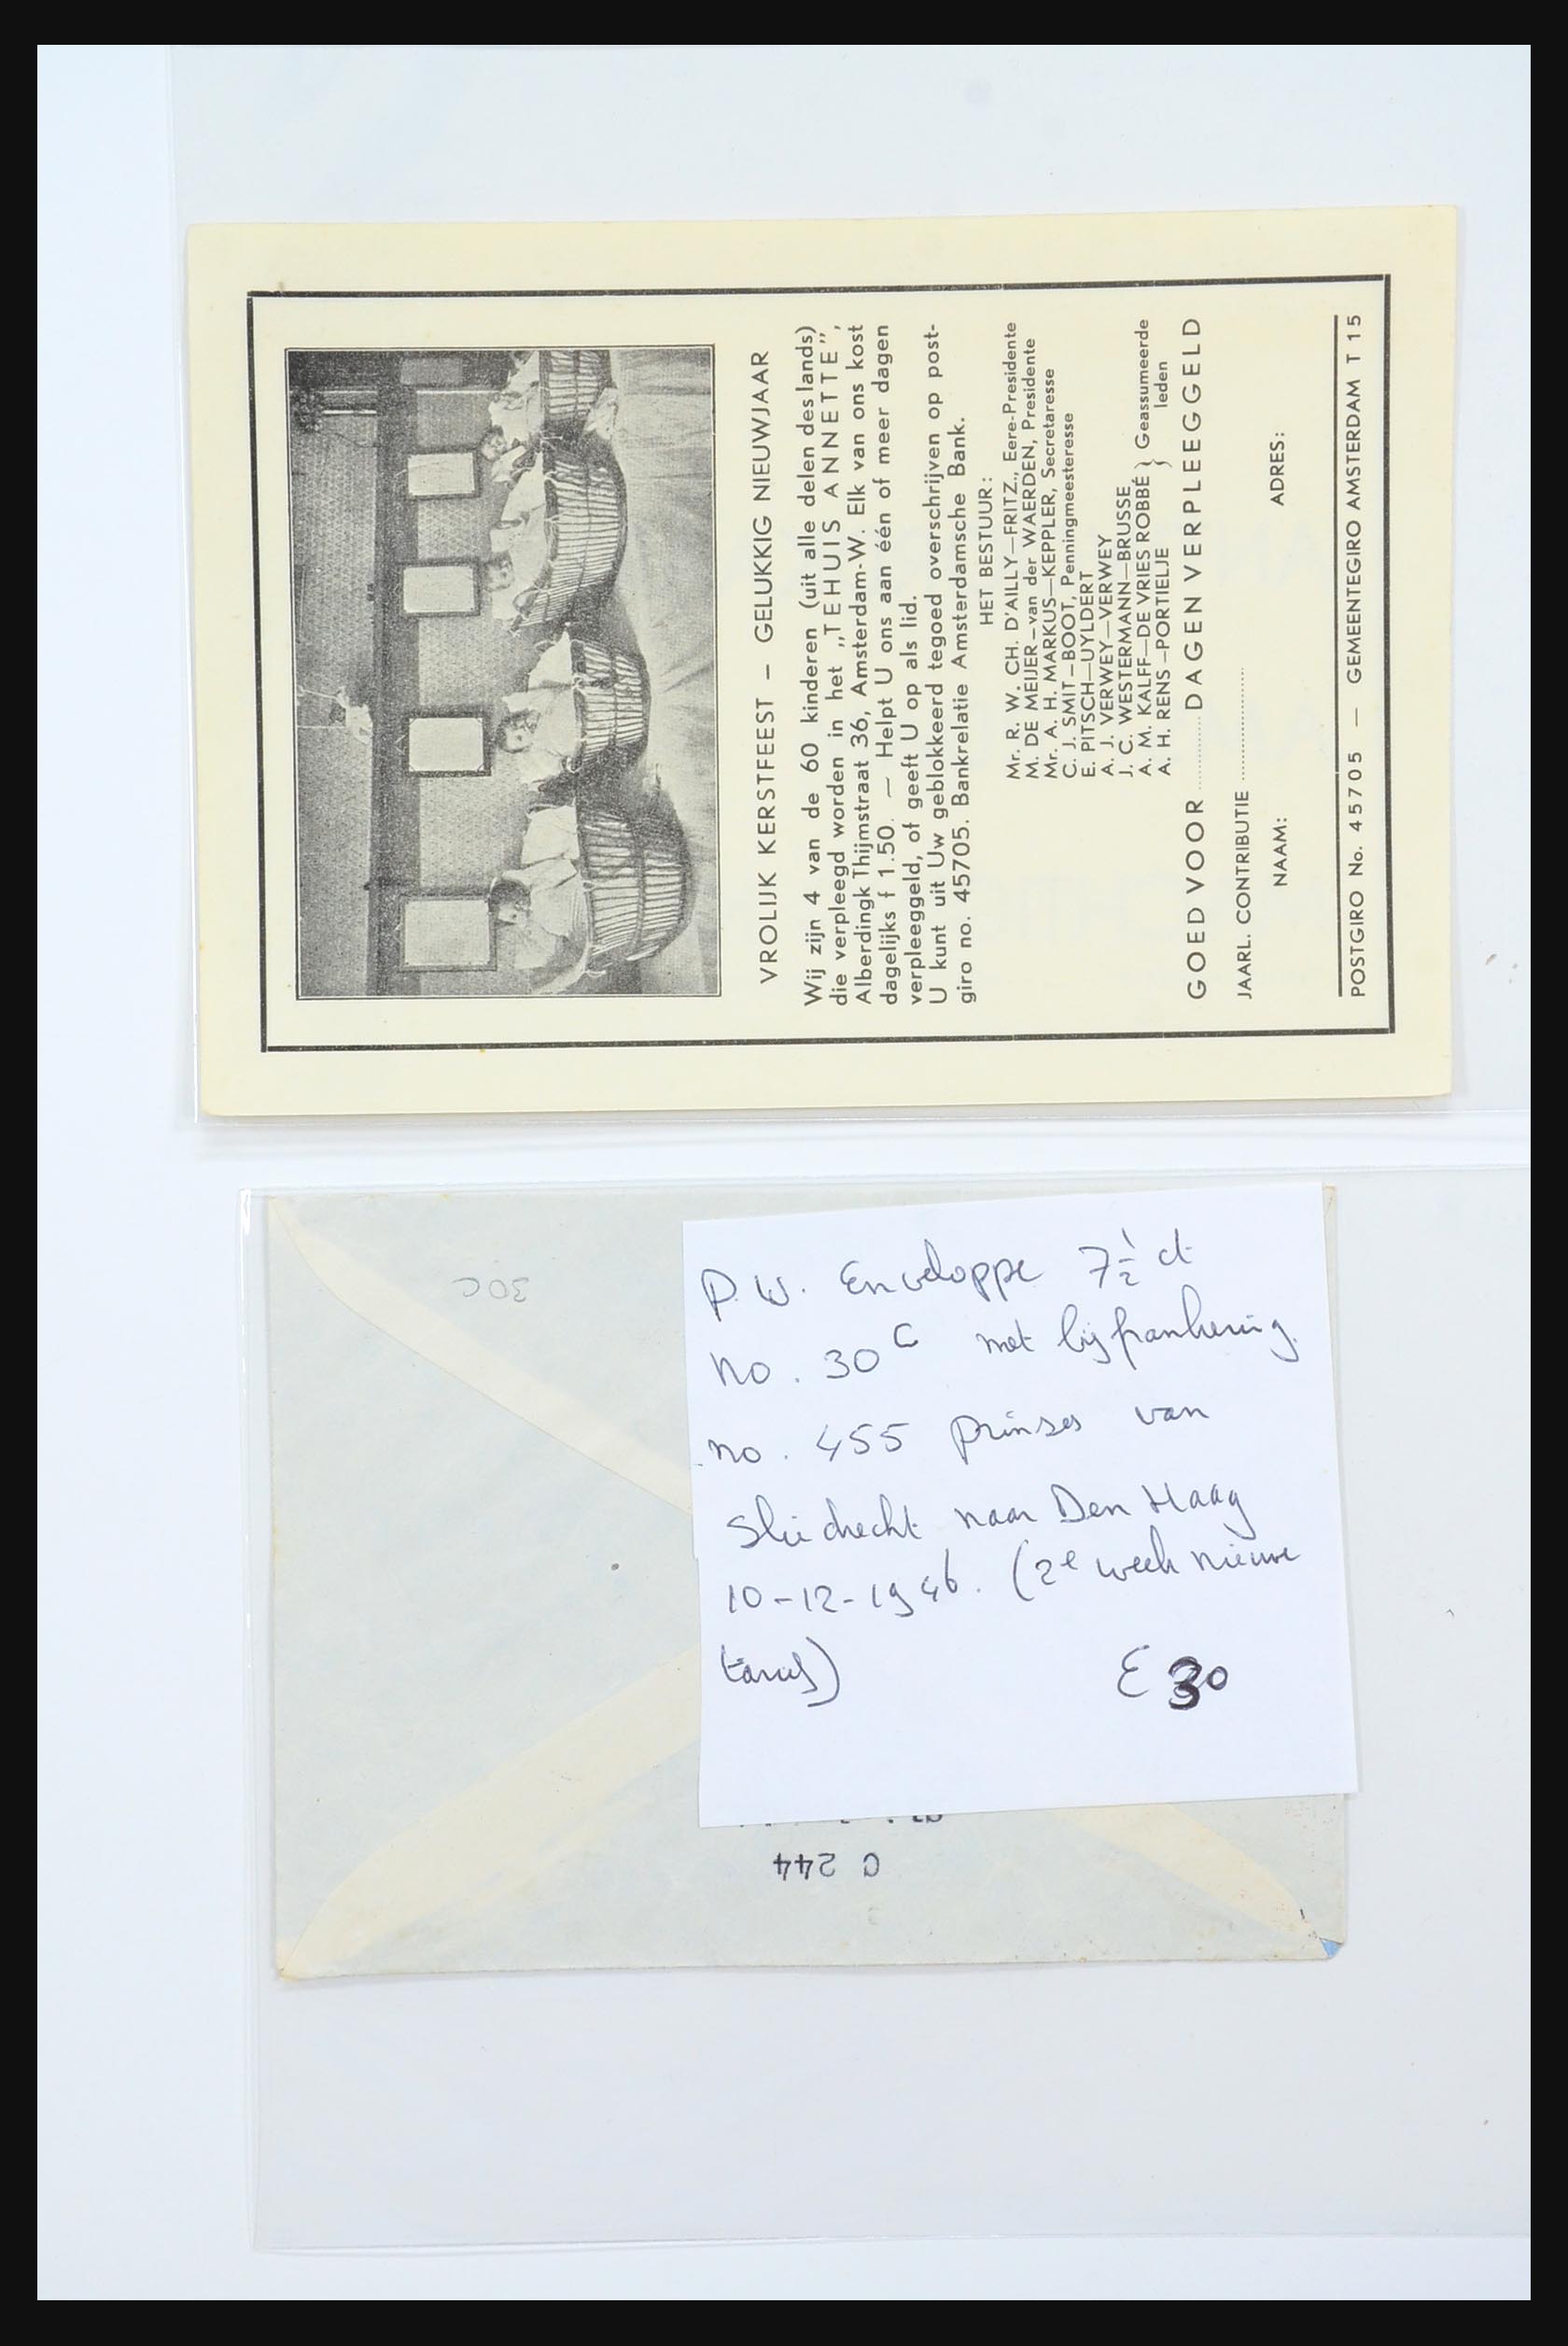 VROLIJK KERSTFEEST – GELUKKIG NIEUWJAAR
Wij zijn 4 van de 60 kinderen (uit alle delen des lands)
die verpleegd worden in het „TEHUIS ANNETTE”,
Alberdingk Thijmstraat 36, Amsterdam-W. Elk van ons kost
dagelijks f 1.50. — Helpt U ons aan één of meer dagen
verpleeggeld, of geeft U op als lid.
U kunt uit Uw geblokkeerd tegoed overschrijven op post-
giro no. 45705. Bankrelatie Amsterdamsche Bank.
HET BESTUUR:
Mr. R. W. CH. D'AILLY—FRITZ., Eere-Presidente
M. DE MEIJER—van der WAERDEN, Presidente
Mr. A. H. MARKUS—KEPPLER, Secretaresse
C. J. SMIT—BOOT, Penningmeesteresse
E. PITSCH—UYLDERT
A. J. VERWEY—VERWEY
J. C. WESTERMANN—BRUSSE
A. M. KALFF—DE VRIES ROBBÉ } Geassumeerde
A. H. RENS –PORTIELJE } leden
GOED VOOR .......... DAGEN VERPLEEGGELD
JAARL. CONTRIBUTIE ....................
NAAM: ADRES:
POSTGIRO No. 45705 — GEMEENTEGIRO AMSTERDAM T 15
30C
P.W. Enveloppe 7½ ct
no. 30 C met bijfrankering.
no. 455 prinses van
Sliedrecht naar Den Haag
10-12-1946. (2e week nieuwe
tarief)
€ 30
C 244